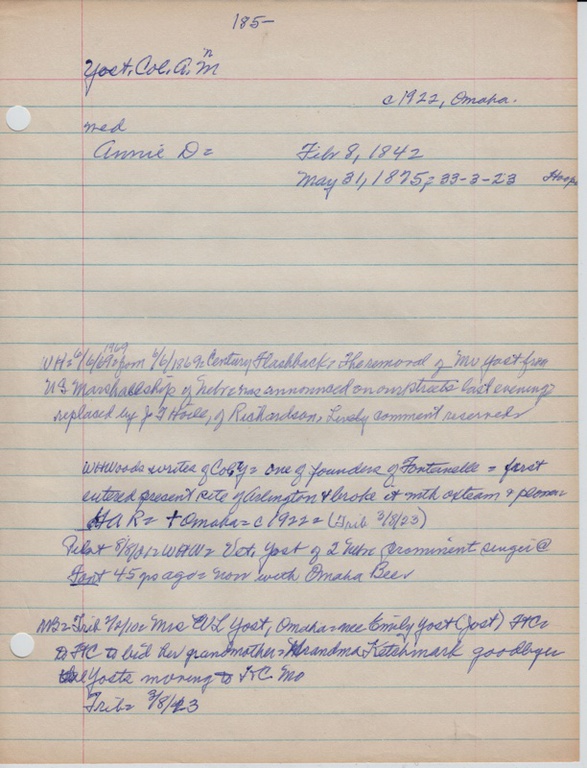 185-
Yost, Col. A. M
c 1922, Omaha.
med
Annie D=
Feb 8, 1842
May 31, 1875; 33-3-23
WH= 6/6/69= from 6/6/1869= Century Flashback: The removal of Mr Yost from
1969
US Marshallship of Nebr was announced on our streets last evening,
replaced by J T Hoile, of Richardson, Lively comment reserved
WHWoods writes of Col Y= one of founders of Fontanelle = first
entered present site of Arlington & broke it with oxteam &
HAR= + Omaha= c 1922= (Trib 3/8/23)
Pilot 8/8/01= WHW= Vet. Yost of 2 Nebr prominent singer @
Font 45 yrs ago= now with Omaha Bee
NB= Trib = Mrs WL Yost, Omaha= nee Emily Yost (Jost) FtC=
to FtC to bid her grandmother= Grandma Ketchmark goodbye
Yosts moving to KC Mo
Trib= 3/8/23